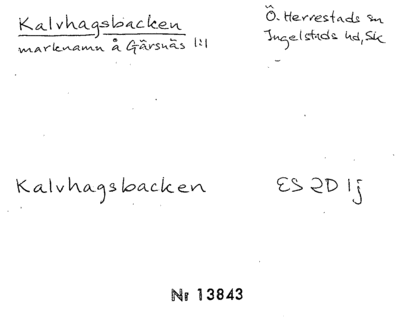 Kalvhagsbacken
marknamn å Gärsnäs 1:1
Ö. Herrestads sn
Ingelstads hd, Sk
Kalvhagsbacken
ES 2D 1j
Nr 13843